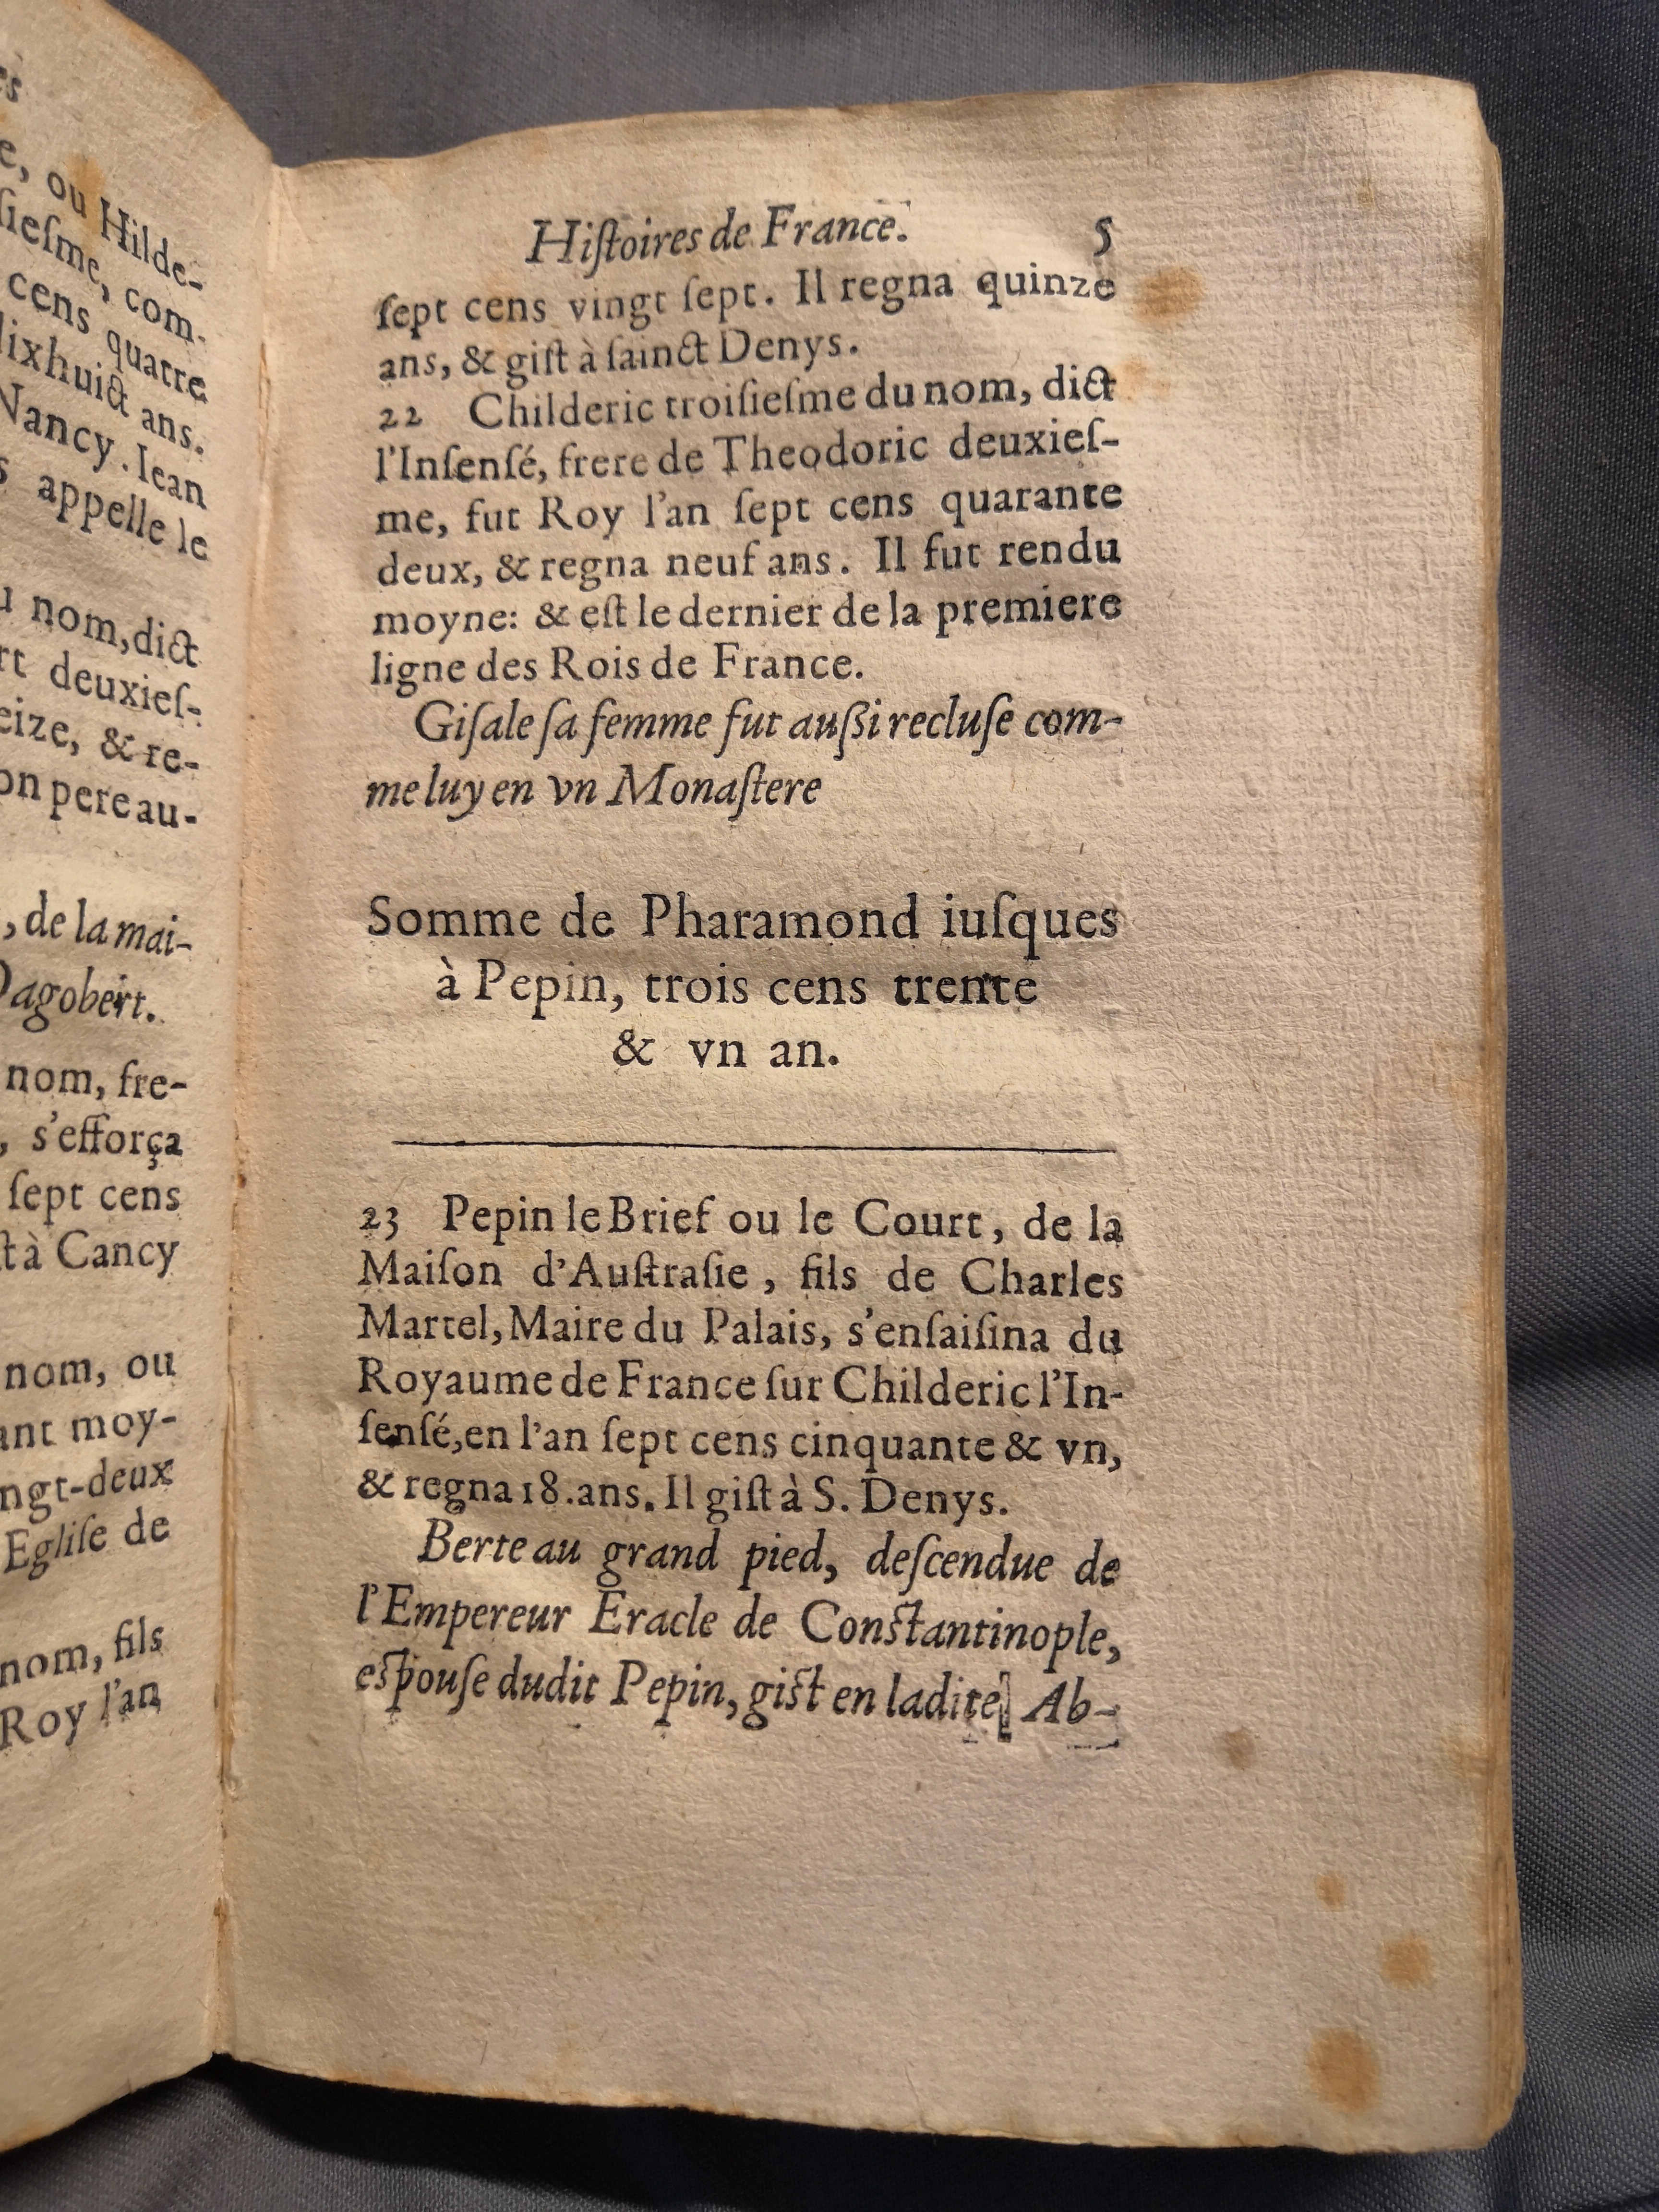 es
e, ou Hilde-
ſieſme, com-
cens quatre
dixhuict ans.
Nancy. Iean
s appelle le
u nom, dict
rt deuxieſ-
eize, & re-
on pere au-
, de la mai-
Dagobert.
nom, fre-
, s'efforça
ſept cens
ſt à Cancy
nom, ou
ant moy-
ngt-deux
Egliſe de
nom, fils
Roy l'an
Hiſtoires de France. 5
ſept cens vingt ſept. Il regna quinze
ans, & giſt à ſainct Denys.
22 Childeric troiſieſme du nom, dict
l'Inſenſé, frere de Theodoric deuxieſ-
me, fut Roy l'an ſept cens quarante
deux, & regna neuf ans. Il fut rendu
moyne: & eſt le dernier de la premiere
ligne des Rois de France.
Giſale ſa femme fut auſſi recluſe com-
me luy en vn Monaſtere
Somme de Pharamond iuſques
à Pepin, trois cens trente
& vn an.
23 Pepin le Brief ou le Court, de la
Maiſon d'Auſtraſie, fils de Charles
Martel, Maire du Palais, s'enſaiſina du
Royaume de France ſur Childeric l'In-
ſenſé, en l'an ſept cens cinquante & vn,
& regna 18. ans. Il giſt à S. Denys.
Berte au grand pied, deſcendue de
l'Empereur Eracle de Conſtantinople,
eſpouſe dudit Pepin, giſt en ladite Ab-